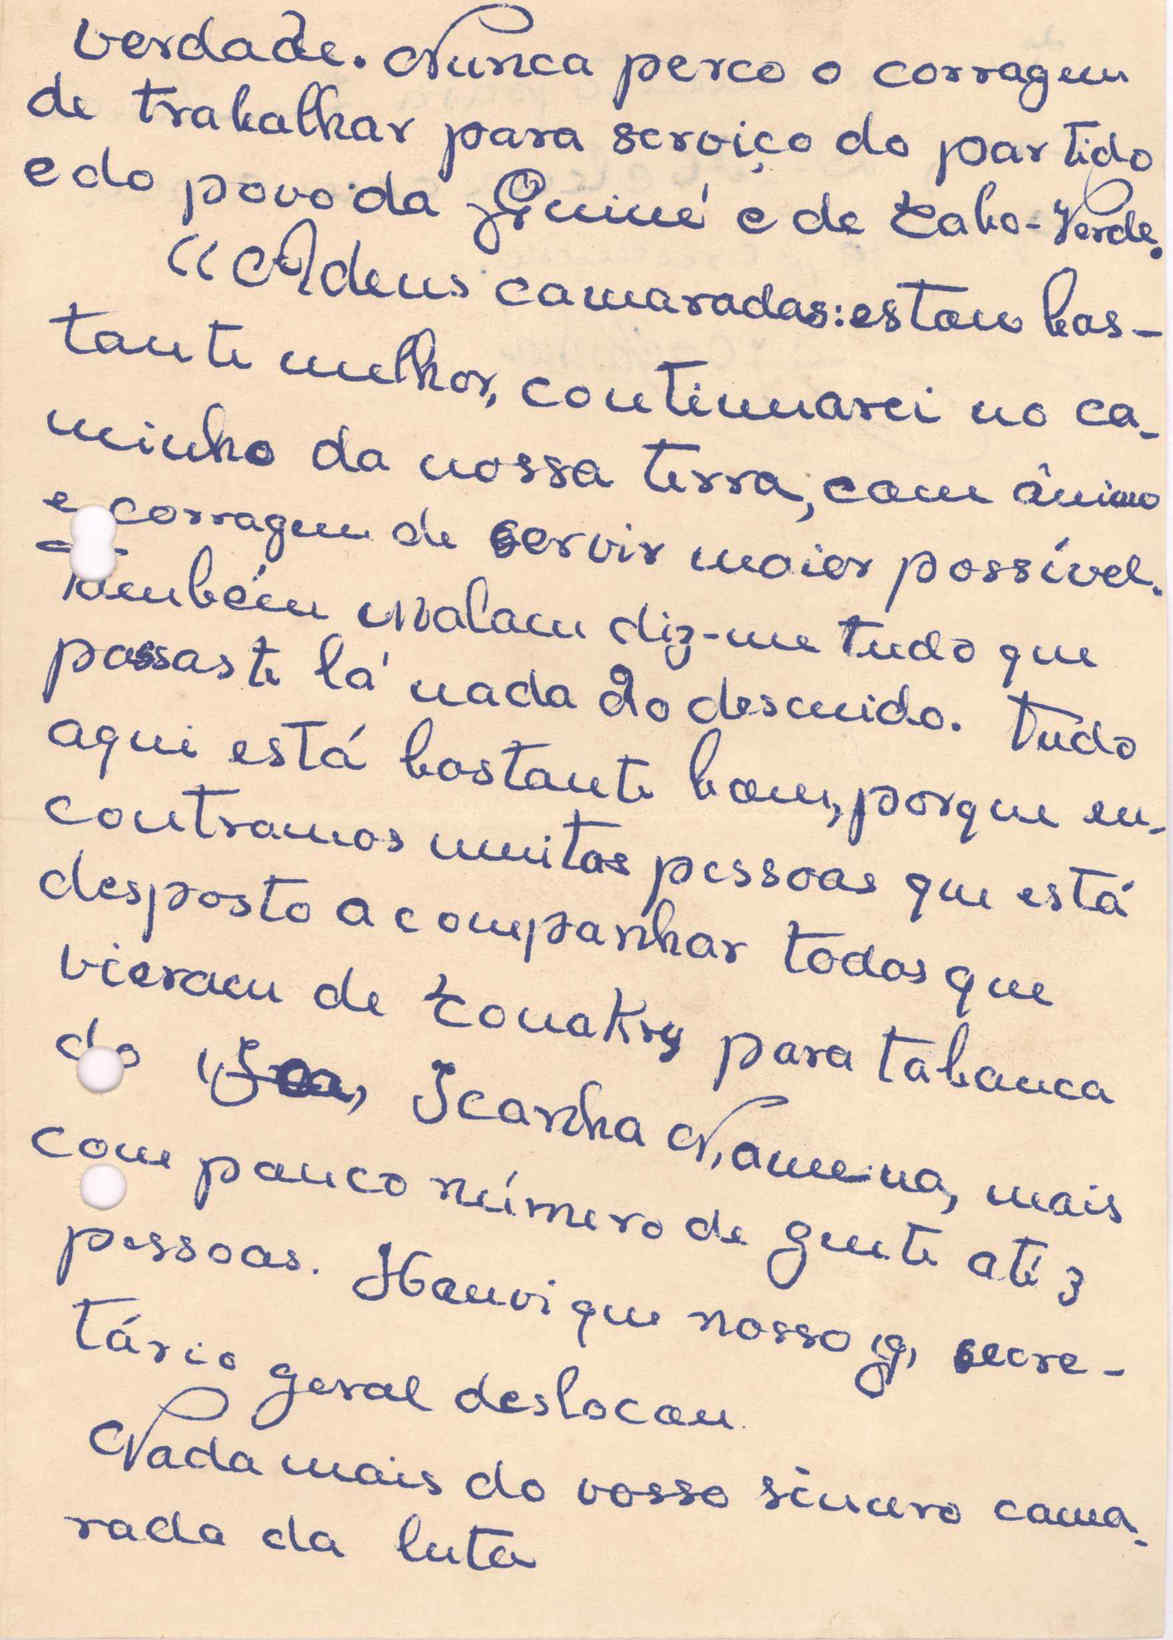 verdade. Nunca perco o corragem
de trabalhar para serviço do partido
e do povo da Guiné e de Cabo-Verde.
"Adeus camaradas: estou bas-
tante melhor, continuarei no ca-
minho da nossa terra, com ânimo
e corragem de servir maior possível.
Também Malam diz-me tudo que
passaste lá nada do descuido. Tudo
aqui está bastante bom, porque en-
contramos muitas pessoas que está
desposto acompanhar todos que
vieram de Conakry para tabanca
do Icanha Namena, mais
com pouco número de gente até 3
pessoas. Hanvi que nosso secre-
tário geral deslocou
Nada mais do vosso sincero cama-
rada da luta